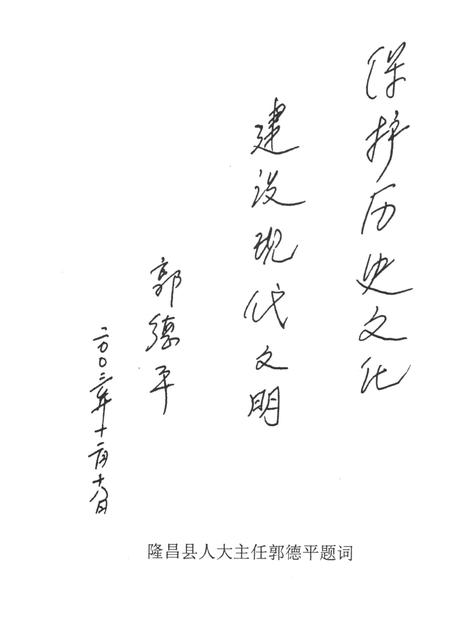 保护历史文化
建设现代文明
郭德平
二〇〇三年十二月十八日
隆昌县人大主任郭德平题词